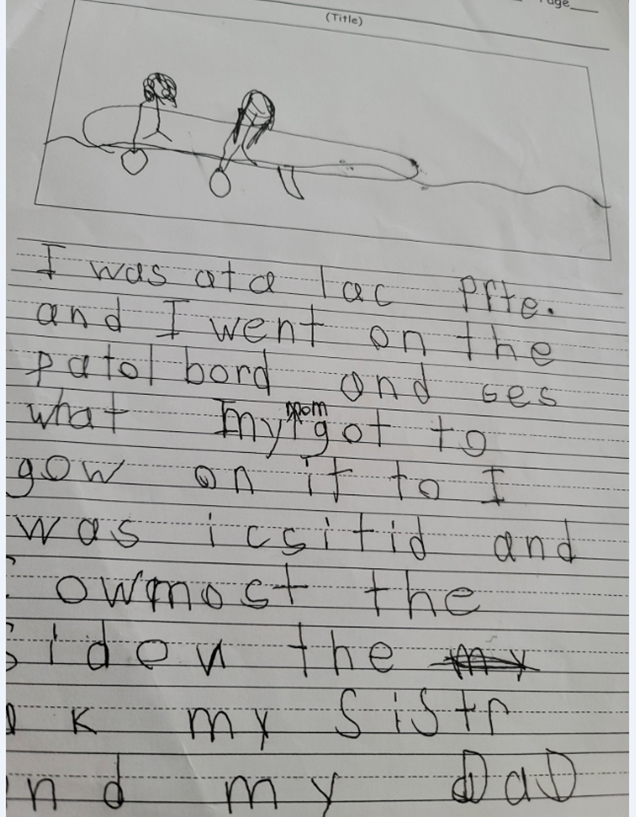 Page
(Title)
I was at a lac Prte.
and I went on the
patol bord and ges
what my mom got to
gow on it to I
was icsitid and
owmost the
siden the my
k my Sistr
nd my DaD